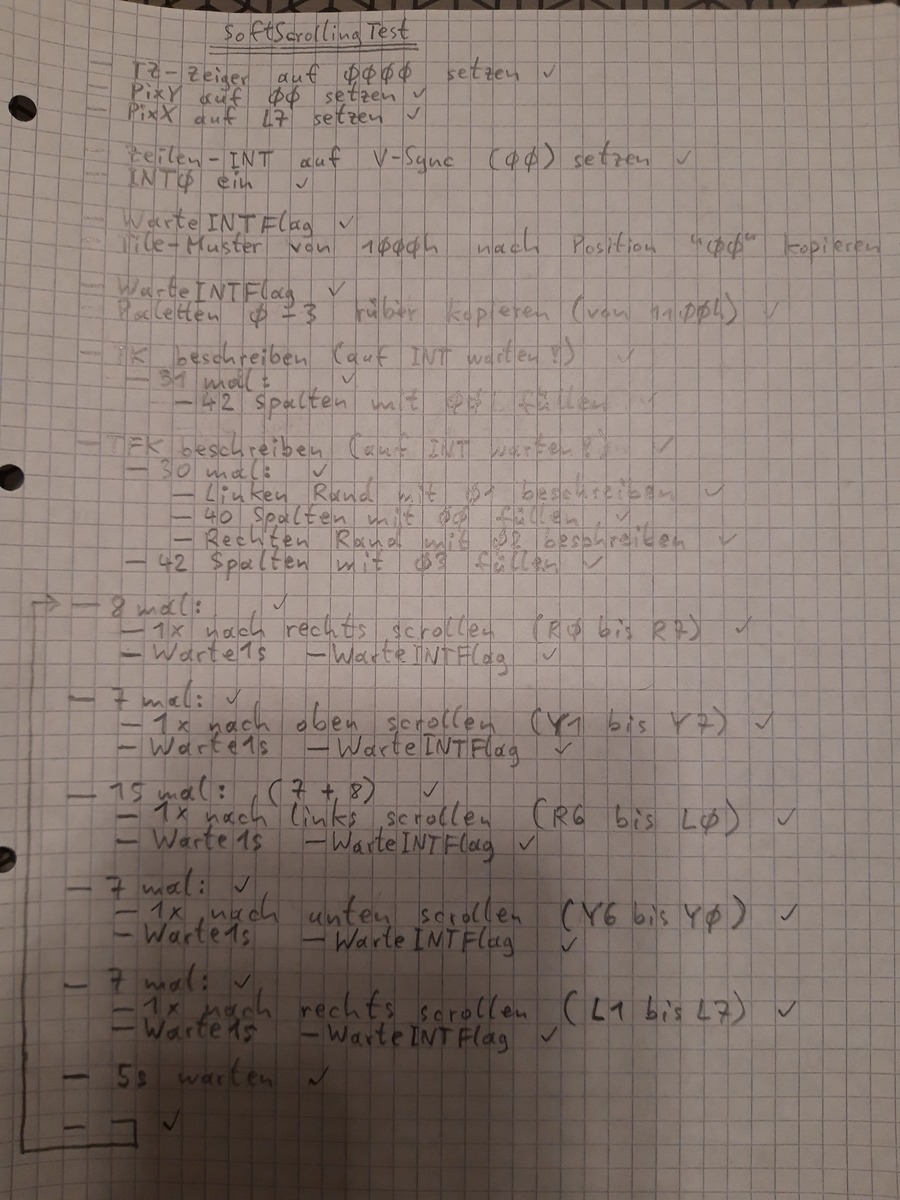 SoftScrollingTest
– TZ-Zeiger auf ØØØØ setzen ✓
– PixY auf ØØ setzen ✓
– PixX auf L7 setzen ✓
– Zeilen-INT auf V-Sync (ØØ) setzen ✓
– INTØ ein ✓
– WarteINTFlag ✓
– Tile-Muster von 1ØØØh nach Position "ØØ" kopieren
– WarteINTFlag ✓
– Paletten Ø – 3 rüber kopieren (von 11ØØh) ✓
– TK beschreiben (auf INT warten!) ✓
– 31 mal: ✓
– 42 Spalten mit füllen ✓
– TFK beschreiben (auf INT warten!) ✓
– 30 mal: ✓
– Linken Rand mit Ø1 beschreiben ✓
– 40 Spalten mit ØØ füllen ✓
– Rechten Rand mit Ø2 beschreiben ✓
– 42 Spalten mit Ø3 füllen ✓
– 8 mal: ✓
– 1x nach rechts scrollen (RØ bis R7) ✓
– Warte1s – WarteINTFlag ✓
– 7 mal: ✓
– 1x nach oben scrollen (Y1 bis Y7) ✓
– Warte1s – WarteINTFlag ✓
– 15 mal: (7 + 8) ✓
– 1x nach links scrollen (R6 bis LØ) ✓
– Warte1s – WarteINTFlag ✓
– 7 mal: ✓
– 1x nach unten scrollen (Y6 bis YØ) ✓
– Warte1s – WarteINTFlag ✓
– 7 mal: ✓
– 1x nach rechts scrollen (L1 bis L7) ✓
– Warte1s – WarteINTFlag ✓
– 5s warten ✓
– ✓